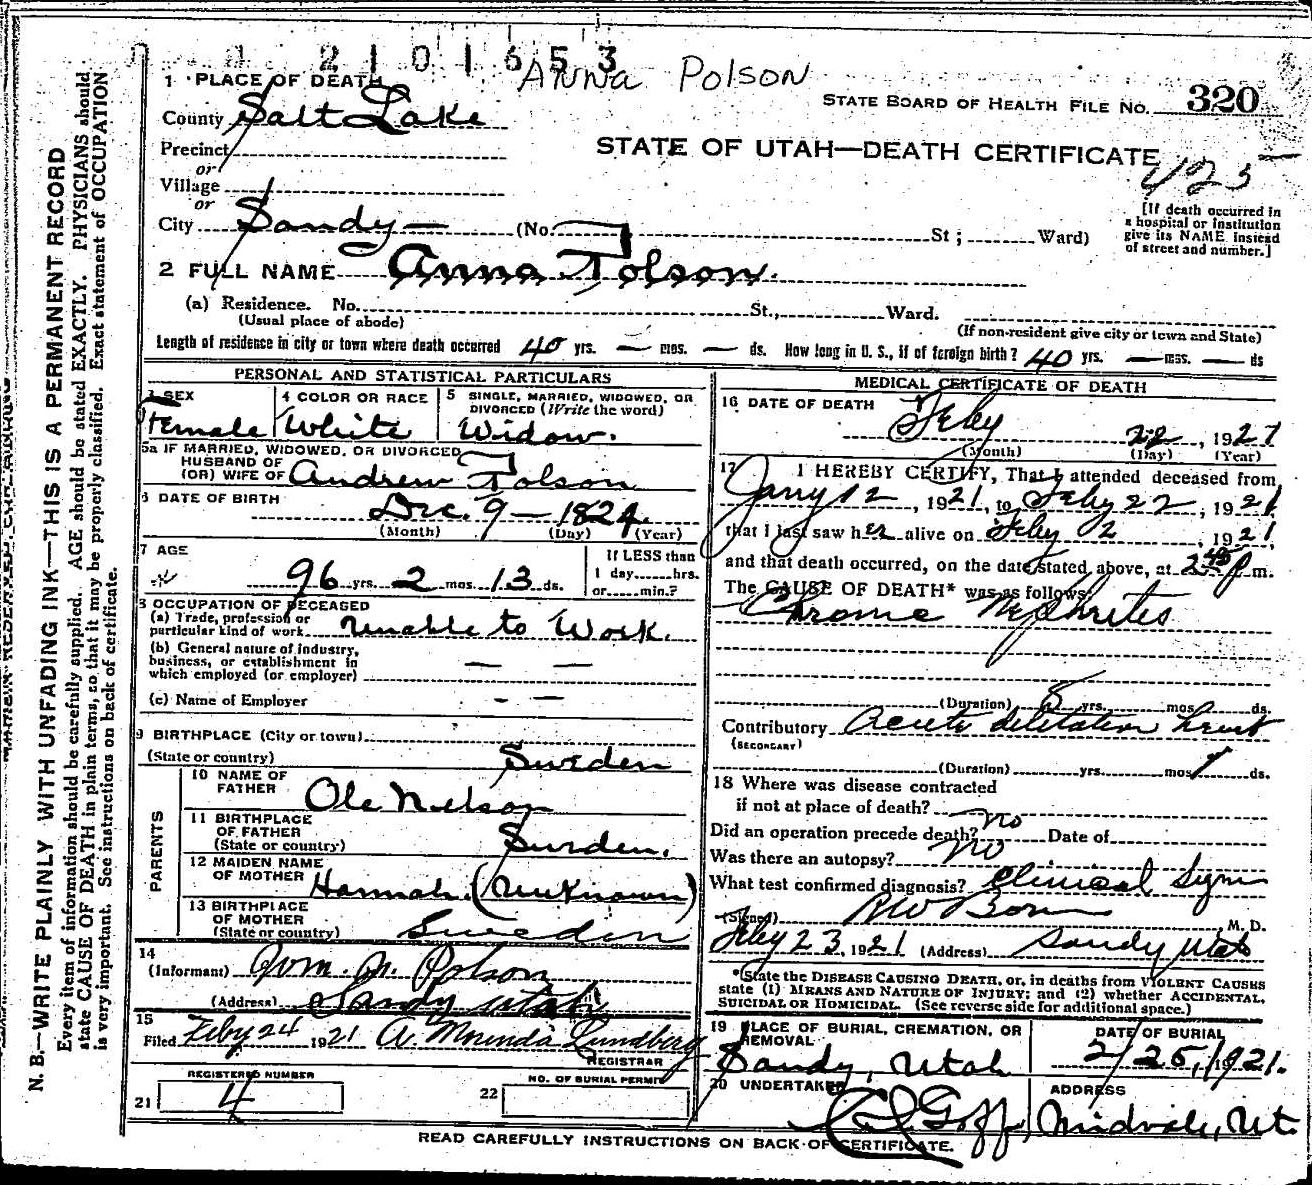 2101653
Anna Polson
1 PLACE OF DEATH
STATE BOARD OF HEALTH FILE NO. 320
County Salt Lake
STATE OF UTAH—DEATH CERTIFICATE
425
Precinct
or
Village
or
City Sandy — (No. St ; Ward)
[If death occurred in
a hospital or institution
give its NAME instead
of street and number.]
2 FULL NAME Anna Tolson.
(a) Residence. No. St., Ward.
(Usual place of abode)
(If non-resident give city or town and State)
Length of residence in city or town where death occurred 40 yrs. — mos. — ds. How long in U. S., if of foreign birth? 40 yrs. — mos. — ds
PERSONAL AND STATISTICAL PARTICULARS
3 SEX
Female
4 COLOR OR RACE
White
5 SINGLE, MARRIED, WIDOWED, OR
DIVORCED (Write the word)
Widow.
5a IF MARRIED, WIDOWED, OR DIVORCED
HUSBAND OF
(OR) WIFE OF Andrew Tolson
6 DATE OF BIRTH
Dec. 9 — 1824.
(Month) (Day) (Year)
7 AGE
96 yrs. 2 mos. 13 ds.
If LESS than
1 day......hrs.
or......min.?
8 OCCUPATION OF DECEASED
(a) Trade, profession or
particular kind of work Unable to Work.
(b) General nature of industry,
business, or establishment in
which employed (or employer) — —
(c) Name of Employer - —
9 BIRTHPLACE (City or town)
(State or country) Sweden
PARENTS
10 NAME OF
FATHER Ole Nelson
11 BIRTHPLACE
OF FATHER
(State or country) Sweden.
12 MAIDEN NAME
OF MOTHER Hannah (Unknown)
13 BIRTHPLACE
OF MOTHER
(State or country) Sweden
14
(Informant) Wm. M. Polson
(Address) Sandy Utah
15
Filed Feby 24 1921 A. Morinda Lundberg
REGISTRAR
REGISTERED NUMBER
21 4
NO. OF BURIAL PERMIT
22
MEDICAL CERTIFICATE OF DEATH
16 DATE OF DEATH
Feby 22, 1921
(Month) (Day) (Year)
17 I HEREBY CERTIFY, That I attended deceased from
Jany 12, 1921, to Feby 22, 1921
that I last saw her alive on Feby 2, 1921,
and that death occurred, on the date stated above, at 2 P m.
The CAUSE OF DEATH* was as follows:
Chronic Nephrites
(Duration) 5 yrs. mos. ds.
Contributory Acute dilitation heart
(SECONDARY)
(Duration) yrs. mos. ds.
18 Where was disease contracted
if not at place of death? no
Did an operation precede death? Date of
Was there an autopsy? no
What test confirmed diagnosis? Clinical Sym
(Signed) M. D.
Feby 23, 1921 (Address) Sandy Utah
*(State the DISEASE CAUSING DEATH, or, in deaths from VIOLENT CAUSES
state (1) MEANS AND NATURE OF INJURY; and (2) whether ACCIDENTAL,
SUICIDAL OR HOMICIDAL. (See reverse side for additional space.)
19 PLACE OF BURIAL, CREMATION, OR
REMOVAL
Sandy, Utah
DATE OF BURIAL
2/25, 1921.
20 UNDERTAKER
Goff
ADDRESS
Midvale, Ut.
READ CAREFULLY INSTRUCTIONS ON BACK OF CERTIFICATE.
N. B.—WRITE PLAINLY WITH UNFADING INK—THIS IS A PERMANENT RECORD
Every item of information should be carefully supplied. AGE should be stated EXACTLY. PHYSICIANS should
state CAUSE OF DEATH in plain terms, so that it may be properly classified. Exact statement of OCCUPATION
is very important. See instructions on back of certificate.